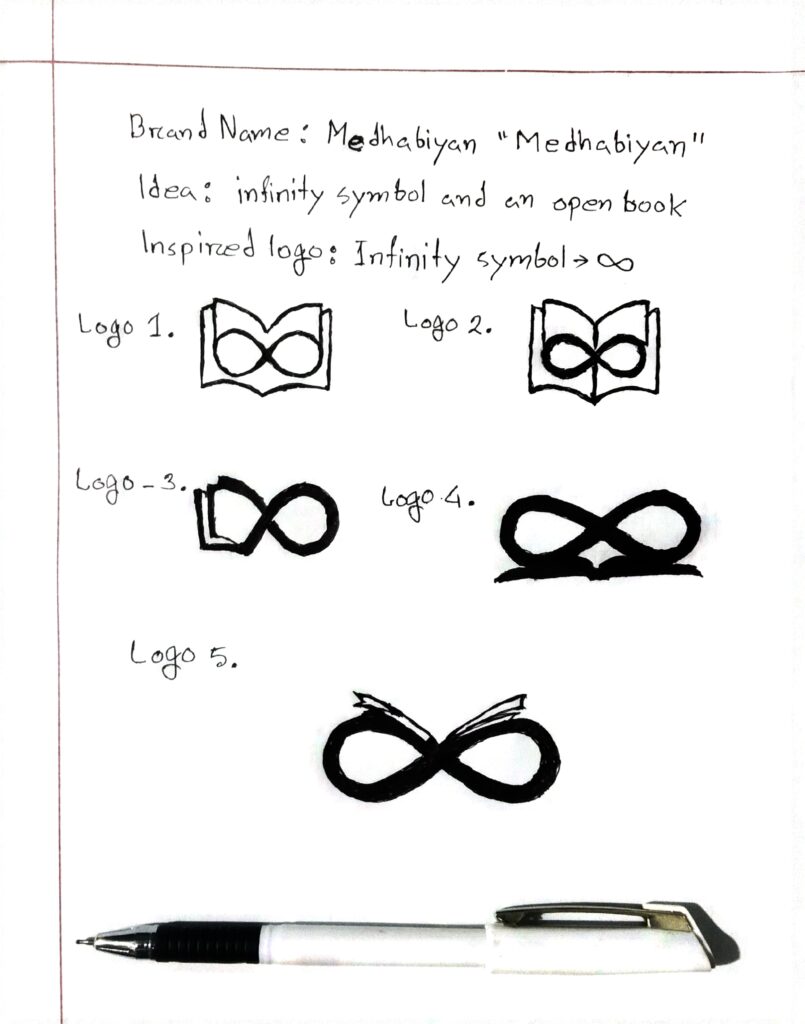 Brand Name: Medhabiyan "Medhabiyan"
Idea: infinity symbol and an open book
Inspired logo: Infinity symbol → ∞
Logo 1.
Logo 2.
Logo - 3.
Logo 4.
Logo 5.